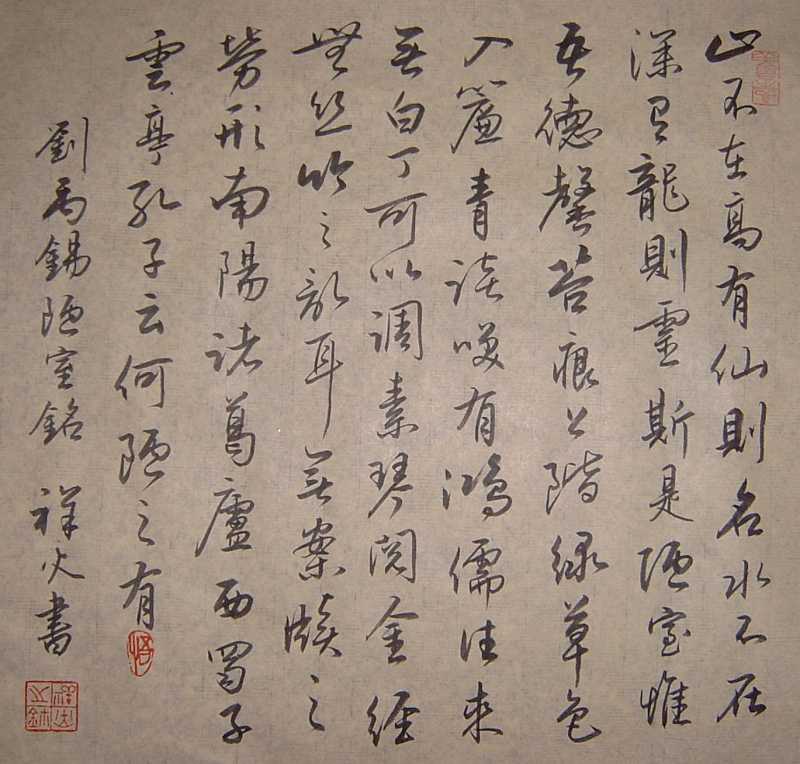 山不在高有仙則名水不在
深有龍則靈斯是陋室惟
吾德馨苔痕上階綠草色
入簾青談笑有鴻儒往來
无白丁可以調素琴閱金經
無丝竹之亂耳无案牘之
勞形南陽諸葛廬西蜀子
雲亭孔子云何陋之有
劉禹錫陋室銘 祥火書
悟